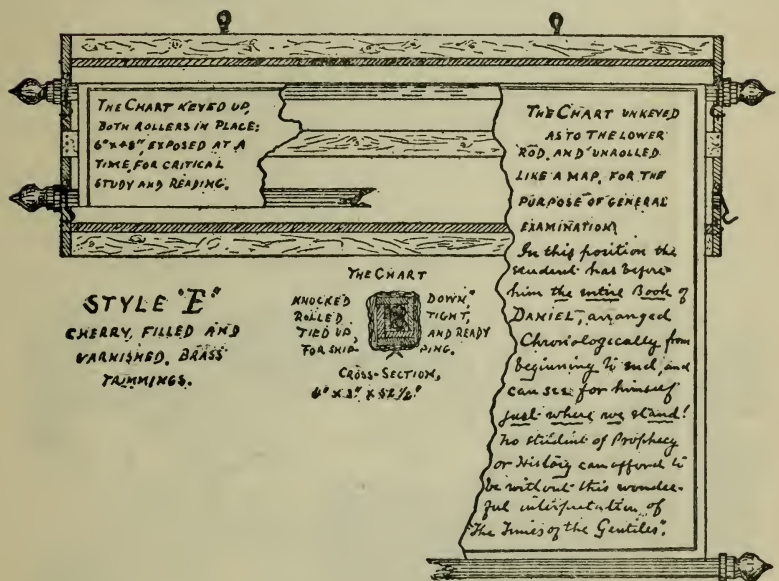 THE CHART KEYED UP,
BOTH ROLLERS IN PLACE;
6"x48", EXPOSED AT A
TIME, FOR CRITICAL
STUDY AND READING.
THE CHART UNKEYED
AS TO THE LOWER
ROD, AND UNROLLED
LIKE A MAP, FOR THE
PURPOSE OF GENERAL
EXAMINATION.
In this position the
student has before
him the entire Book of
DANIEL, arranged
Chronologically from
beginning to end, and
can see for himself
just where we stand!
No student of Prophecy
or History can afford to
be without this wonder-
ful interpretation of
"The Times of the Gentiles".
STYLE "E"
CHERRY, FILLED AND
VARNISHED, BRASS
TRIMMINGS.
THE CHART
KNOCKED DOWN,"
ROLLED TIGHT,
TIED UP, AND READY
FOR SHIP- PING.
CROSS-SECTION,
4" x 3" x 52 1/2"